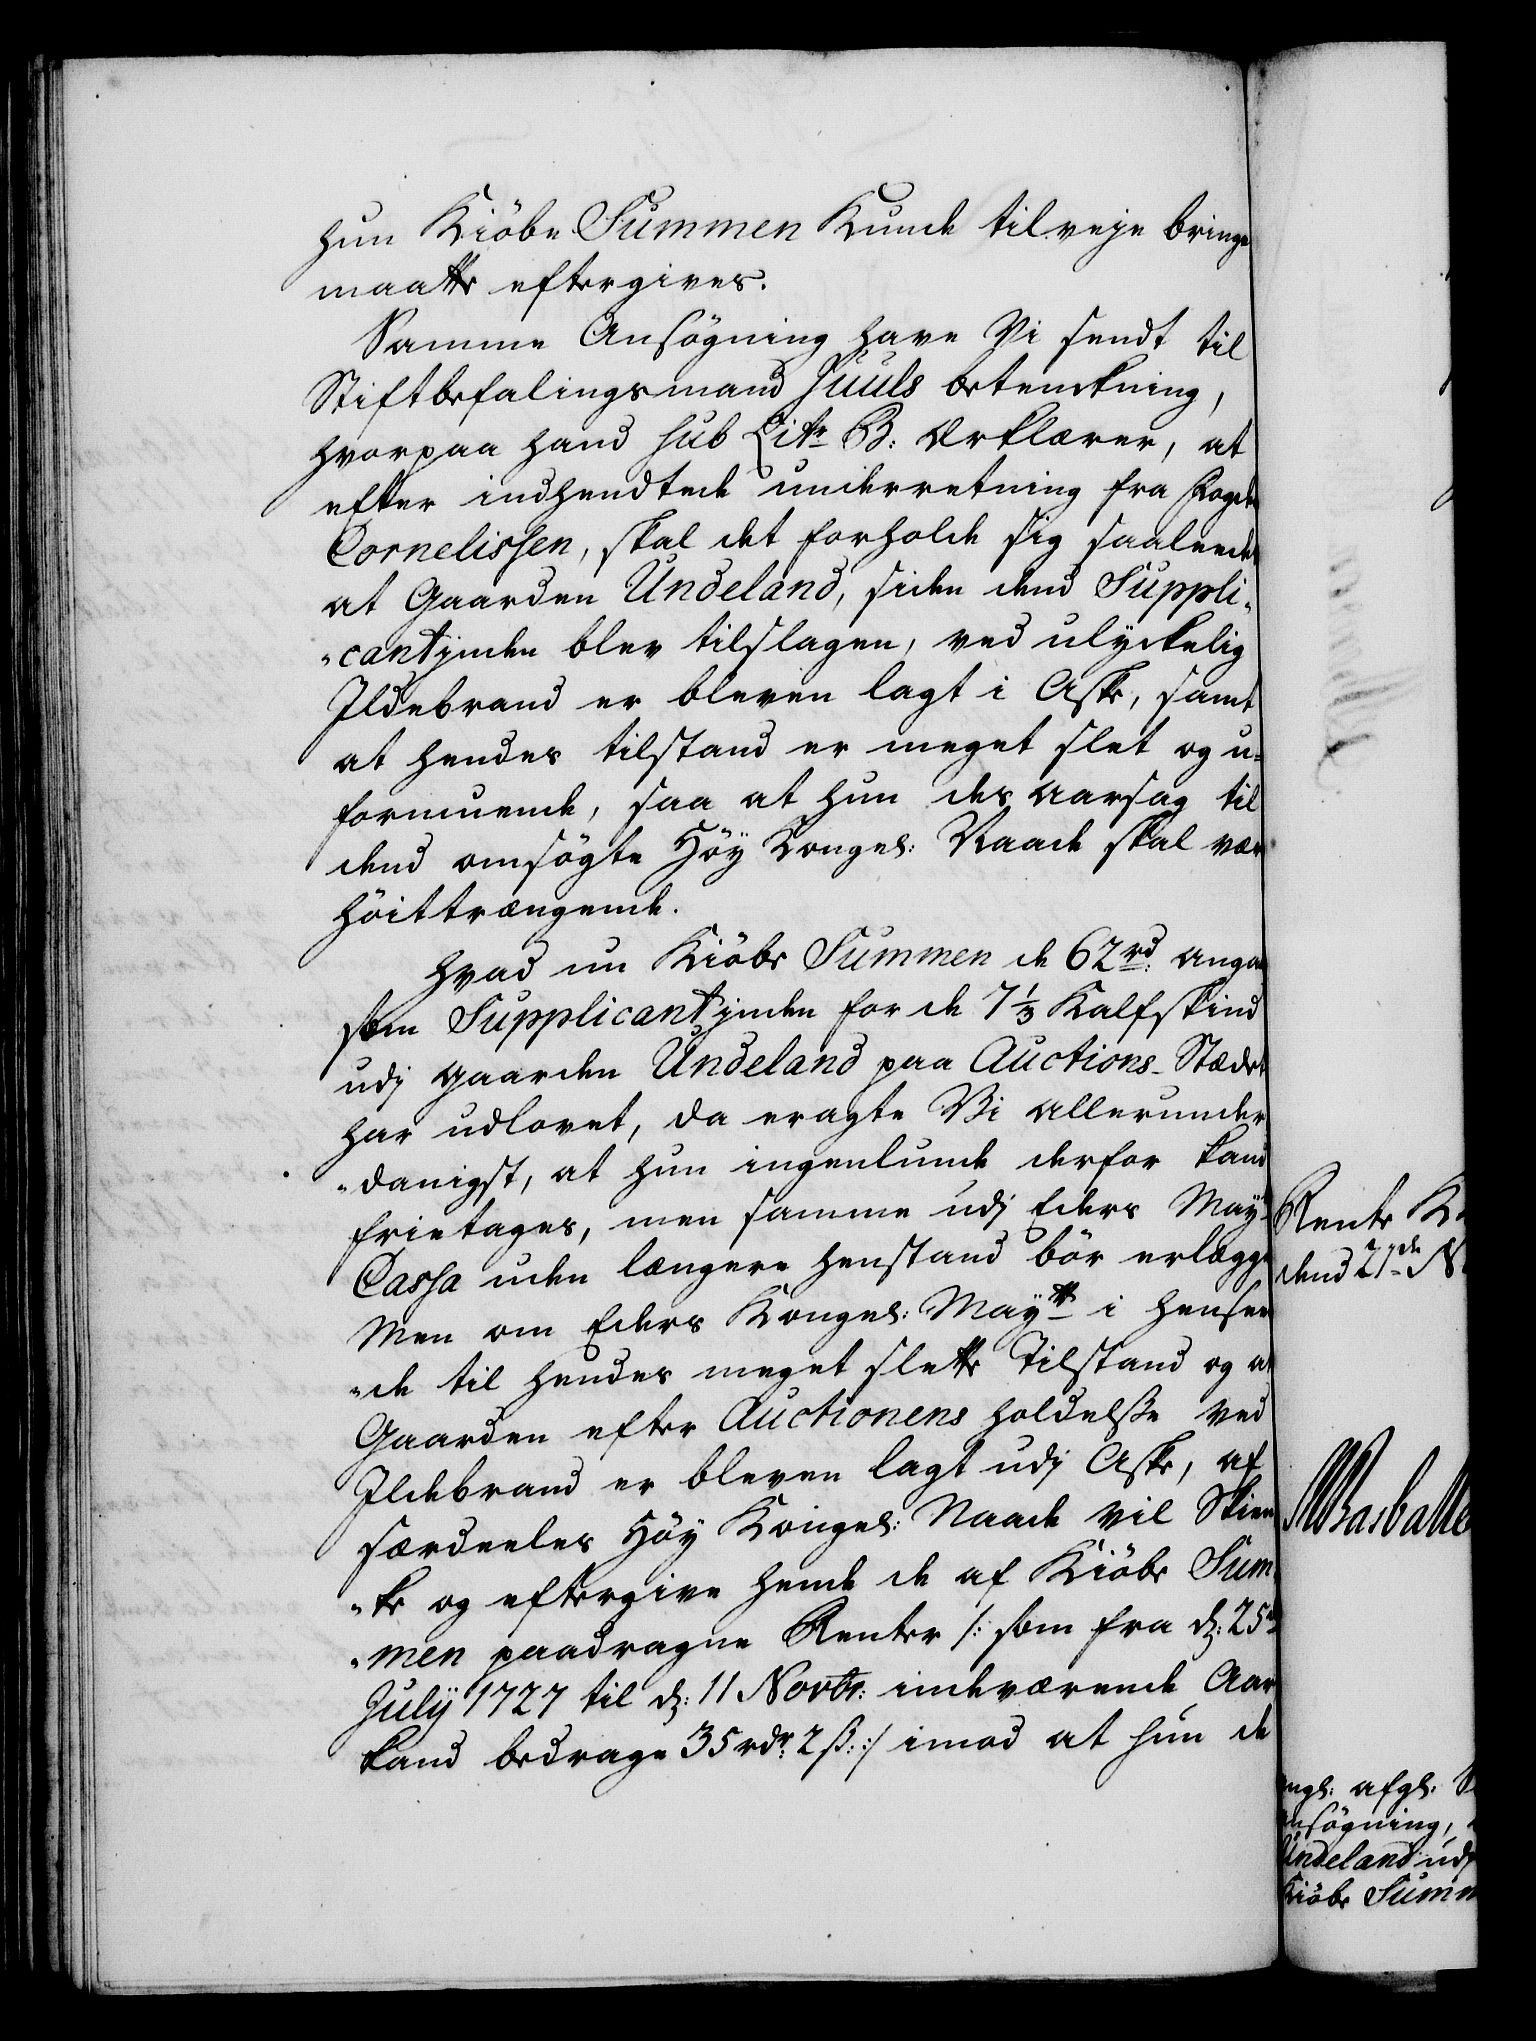 hun Kiöbe Summen Kunde tilveje bringe
maatte eftergives.
Samme Ansögning have Vi sendt til
Stiftbefalingsmand Juuls betenckning,
hvorpaa hand sub Litr B: Erklærer, at
efter indhendtede underretning fra Foget
Cornelissen, skal det forholde sig saaleedes
at Gaarden Undeland, siden dend Suppli„
„cantjnden blev tilslagen, ved ulyckelig
Ildebrand er bleven lagt i Aske, samt
at hendes tilstand er meget slet og u„
formuende, saa at hun des Aarsag til
dend omsögte Höy Kongel: Naade skal være
höittrængende.
Hvad nu Kiöbe Summen de 62 rd: anga
som Supplicantjnden for de 7 1/3 Kalfskind
udj gaarden Undeland paa Auctions-Stædet
har udlovet, da eragte Vi allerunder
„danigst, at hun ingenlunde derfor kand
frietages, men samme udj Eders May
Cassa uden længere henstand bör erlægge
Men om Eders Kongel: Maytt i henseen
„de til hendes meget slette Tilstand og at
Gaarden efter Auctionens holdelsse ved
Ildebrand er bleven lagt udj Aske, af
særdeeles Höy Kongel: Naade vil Skien
„ke og eftergive hende de af Kiöbe Sum
„men paadragne Renter /: som fra d: 25
July 1727 til d: 11 Novbr: indeværende Aar
kand bedrage 35 rdr: 2 ß: :/ imod at hun de
Rente K
dend 21de N
ngl: afgl: S
nsögning,
Undeland udj
Kiöbe Summ